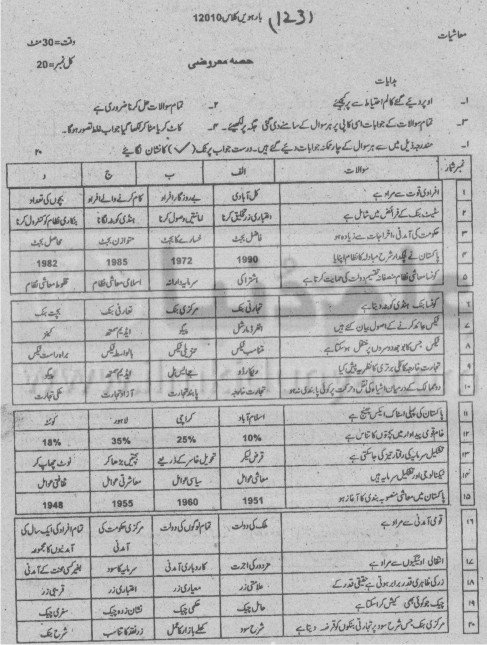 (123) بارہویں کلاس 12010
معاشیات
وقت=30 منٹ
حصہ معروضی
کل نمبر=20
ہدایات
۱۔ اوپر دیئے گئے کالم احتیاط سے پر کیجئے ۲۔ تمام سوالات حل کرنا ضروری ہے
۳۔ تمام سوالات کے جوابات اسی کاپی پر ہر سوال کے سامنے دی گئی جگہ پر لکھیئے۔ ۴۔ کاٹ کر یا مٹا کر لکھا گیا جواب غلط تصور ہوگا۔
۱۔ مندرجہ ذیل میں سے ہر سوال کے چار ممکنہ جوابات دیئے گئے ہیں۔ درست جواب پر ٹک (✓) کا نشان لگائیے ۲۰
نمبر شمار سوالات الف ب ج د
۱ افرادی قوت سے مراد ہے کل آبادی بے روزگار افراد کام کرنے والے افراد بچوں کی تعداد
۲ سٹیٹ بنک کے فرائض میں شامل ہے اعتباری زر تخلیق کرنا امانتیں وصول کرنا ہنڈی کو بٹہ لگانا بنکاری نظام کو کنٹرول کرنا
۳ حکومت کی آمدنی، اخراجات سے زیادہ ہو فاضل بجٹ خسارے کا بجٹ متوازن بجٹ محاصل بجٹ
۴ پاکستان نے لچکدار شرح مبادلہ کا نظام اپنایا 1990 1972 1985 1982
۵ کونسا معاشی نظام منصفانہ تقسیم دولت کی حمایت کرتا ہے اشتراکی سرمایہ دارانہ اسلامی معاشی نظام مخلوط معاشی نظام
۶ کونسا بنک ہنڈی کو بٹہ دیتا ہے تجارتی بنک مرکزی بنک تعارفی بنک بچت بنک
۷ ٹیکس عائد کرنے کے اصول بیان کئے ہیں الفرڈ مارشل پیگو ایڈیم سمتھ کینز
۸ ٹیکس جس کا بوجھ دوسروں پر منتقل ہو سکتا ہے متناسب ٹیکس تنزیلی ٹیکس بالواسطہ ٹیکس براہ راست ٹیکس
۹ تجارت خارجہ کا تقابلی برتری کا نظریہ پیش کیا ریکارڈو جے ایس مل ایڈیم سمتھ پیگو
۱۰ دو ممالک کے درمیان اشیاء کی نقل و حرکت پر کوئی پابندی نہ ہو تجارت خارجہ پابند تجارت آزاد تجارت ملکی تجارت
۱۱ پاکستان کی پہلی سٹاک ایکس چینج ہے اسلام آباد کراچی لاہور کوئٹہ
۱۲ خام قومی پیداوار میں بچتوں کا تناسب ہے 10% 25% 35% 18%
۱۳ تشکیل سرمایہ کی رفتار تیز کی جا سکتی ہے قرض لیکر تمویل خاسر کے ذریعے بچتیں بڑھا کر نوٹ چھاپ کر
۱۴ ٹیکنالوجی اور تشکیل سرمایہ ہیں معاشی عوامل سیاسی عوامل معاشرتی عوامل ثقافتی عوامل
۱۵ پاکستان میں معاشی منصوبہ بندی کا آغاز ہوا 1951 1960 1955 1948
۱۶ قومی آمدنی سے مراد ہے ملک کی دولت تمام لوگوں کی دولت مرکزی حکومت کی تمام افراد کی ایک سال کی
آمدنی آمدنیوں کا مجموعہ
۱۷ انتقالی ادائیگیوں سے مراد ہے مزدور کی اجرت کاروباری آمدنی سرمایہ کا سود بغیر کسی محنت کے آمدنی
۱۸ زر کی ظاہری قدر برابر ہوتی ہے حقیقی قدر کے علامتی زر معیاری زر اعتباری زر قرطاسی زر
۱۹ چیک جو کوئی بھی کیش کرا سکتا ہے حامل چیک حکمی چیک نشان زدہ چیک سفری چیک
۲۰ مرکزی بنک جس شرح سود پر تجارتی بنکوں کو قرضہ دیتا ہے شرح سود کھلے بازار کا عمل زر نقد کا تناسب شرح بنک